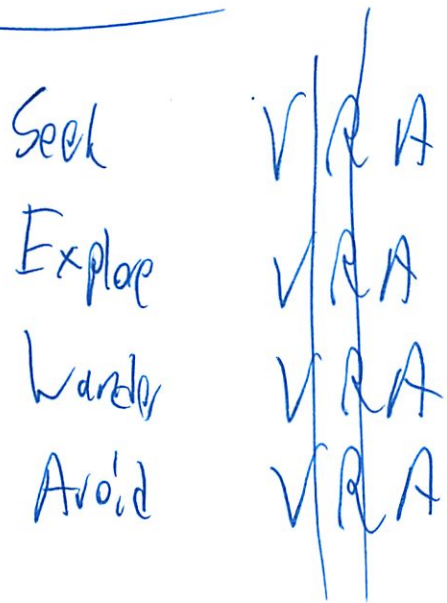 Seek V R A
Explore V R A
Wander V R A
Avoid V R A